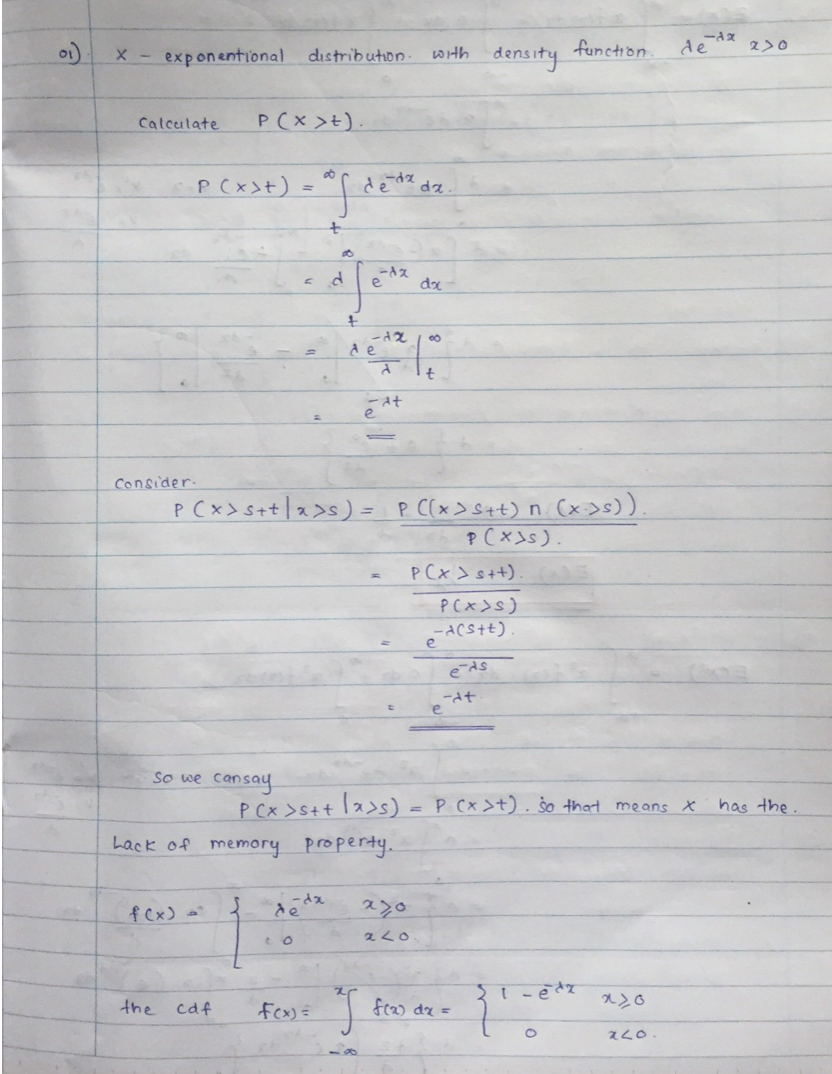 01) X - exponentional distribution. with density function. λe^{-λx} x>0
Calculate P(X>t).
P(X>t) = ∫_t^∞ λe^{-λx} dx.
= λ ∫_t^∞ e^{-λx} dx
= λ e^{-λx}/λ |_t^∞
= e^{-λt}
Consider.
P(X>s+t|x>s) = P((X>s+t) ∩ (X>s))./P(X>s).
= P(X>s+t)./P(X>s)
= e^{-λ(s+t)}./e^{-λs}
= e^{-λt}
So we cansay
P(X>s+t|x>s) = P(X>t). so that means X has the.
Lack of memory property.
f(x) = { λe^{-λx} x≥0
0 x<0.
the cdf F(x) = ∫_{-∞}^x f(x) dx = { 1 - e^{-λx} x≥0
0 x<0.